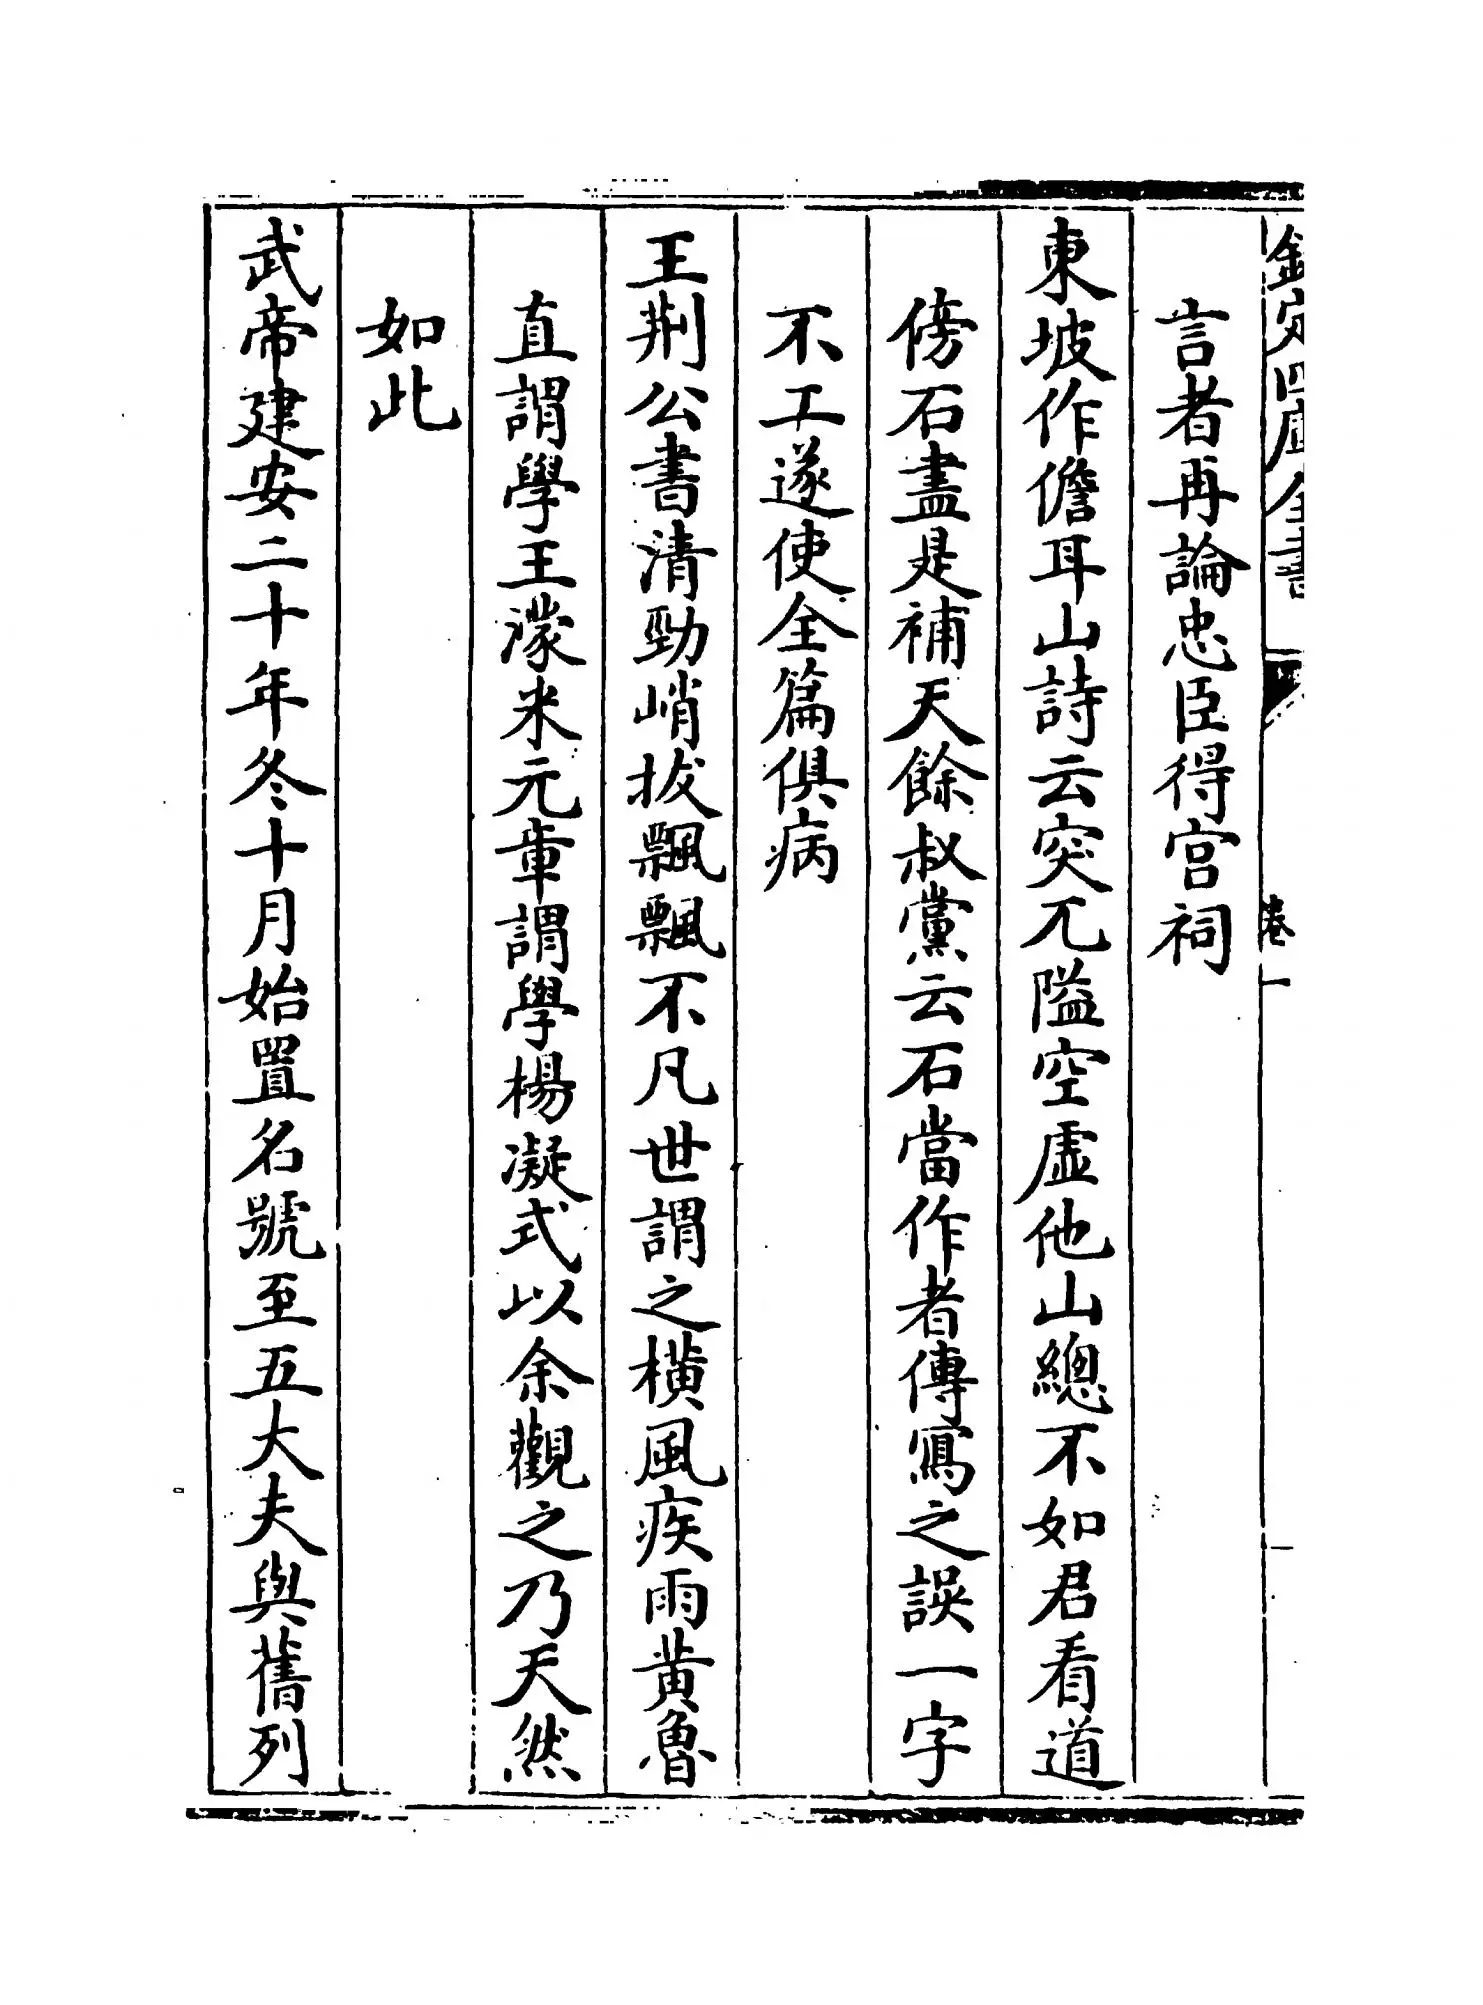 欽定四庫全書
卷一
言者再論忠臣得宫祠
東坡作儋耳山詩云突兀隘空虚他山總不如君看道
傍石盡是補天餘叔黨云石當作者傳寫之誤一字
不工遂使全篇俱病
王荆公書清勁峭拔飄飄不凡世謂之横風疾雨黄魯
直謂學王濛米元章謂學楊凝式以余觀之乃天然
如此
武帝建安二十年冬十月始置名號至五大夫與舊列